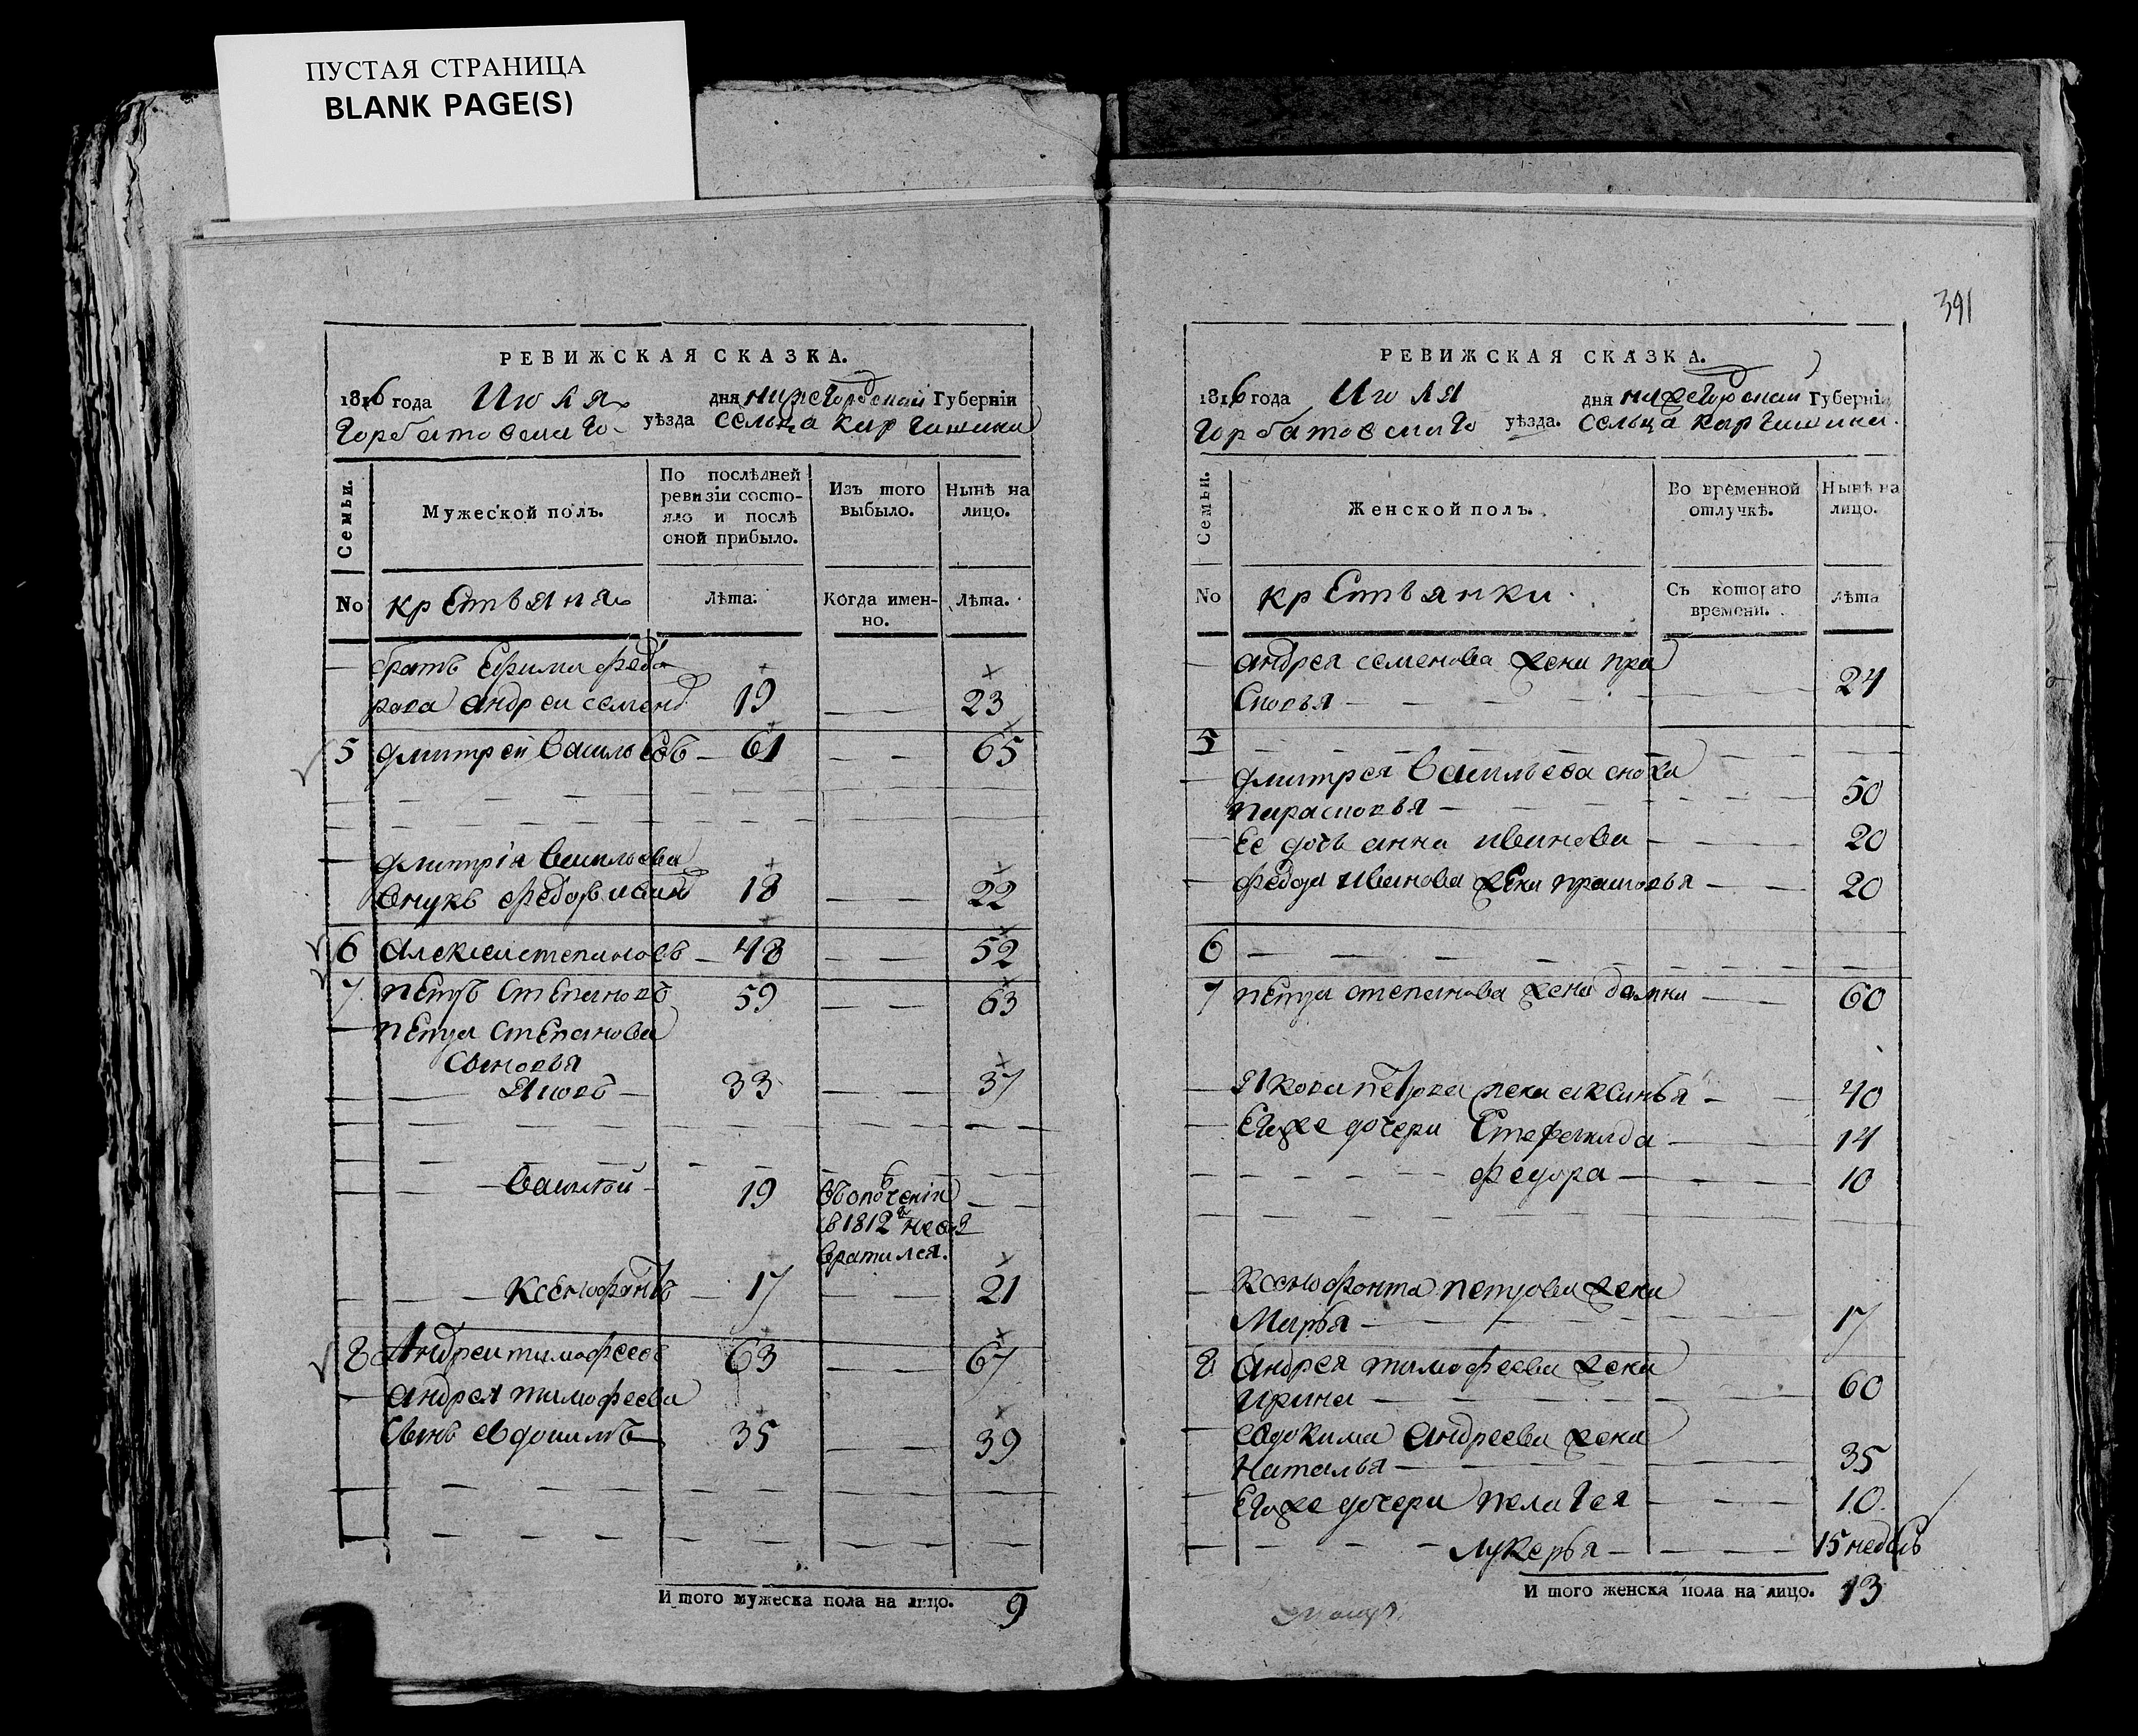 ПУСТАЯ СТРАНИЦА
BLANK PAGE(S)
РЕВИЖСКАЯ СКАЗКА.
1816 года Июля дня нижегородской Губерніи
Горбатовскаго уѣзда сельца каргашина
Семьи.
Мужеской полъ.
По послѣдней ревизіи состо-
яло и послѣ
оной прибыло.
Изъ того
выбыло.
Нынѣ на
лицо.
No крестьяня лѣта: Когда имен-
но. Лѣта.
братъ Ефима федо
рова андреи семено 19 23
5 дмитрей васильевъ 61 65
дмитрія васильева
внукъ федоръ ивано 18 22
6 алексеи степановъ 48 52
7 петръ степановъ 59 63
петра степанова
сыновья
Яковъ 33 37
василей 19 въ ополченіи
в 1812 г не воз
вратился.
Ксенофонтъ 17 21
8 Андреи тимофеевъ 63 67
андрея тимофеева
сынъ евдокимъ 35 39
И того мужеска пола на лицо. 9
391
РЕВИЖСКАЯ СКАЗКА.
1816 года Июля дня нижегородской Губерніи
Горбатовскаго уѣзда. сельца каргашина.
Семьи.
Женской полъ.
Во временной
отлучкѣ.
Нынѣ на
лицо.
No крестьянки Съ котораго
времени. лѣта
андрея семенова жена пра
сковья 24
5
дмитрея васильева сноха
парасковья 50
Ее дочь анна иванова 20
федора иванова жена прасковья 20
6
7 петра степанова жена домна 60
Якова петрова жена аксинья 40
Егоже дочери Степанида 14
федора 10
Ксенофонта петрова жена
Марья 17
8 андрея тимофеева жена
ирина 60
евдокима андреева жена
Наталья 35
Егоже дочери пелагея 10
лукерья 15 недель
И того женска пола на лицо. 13